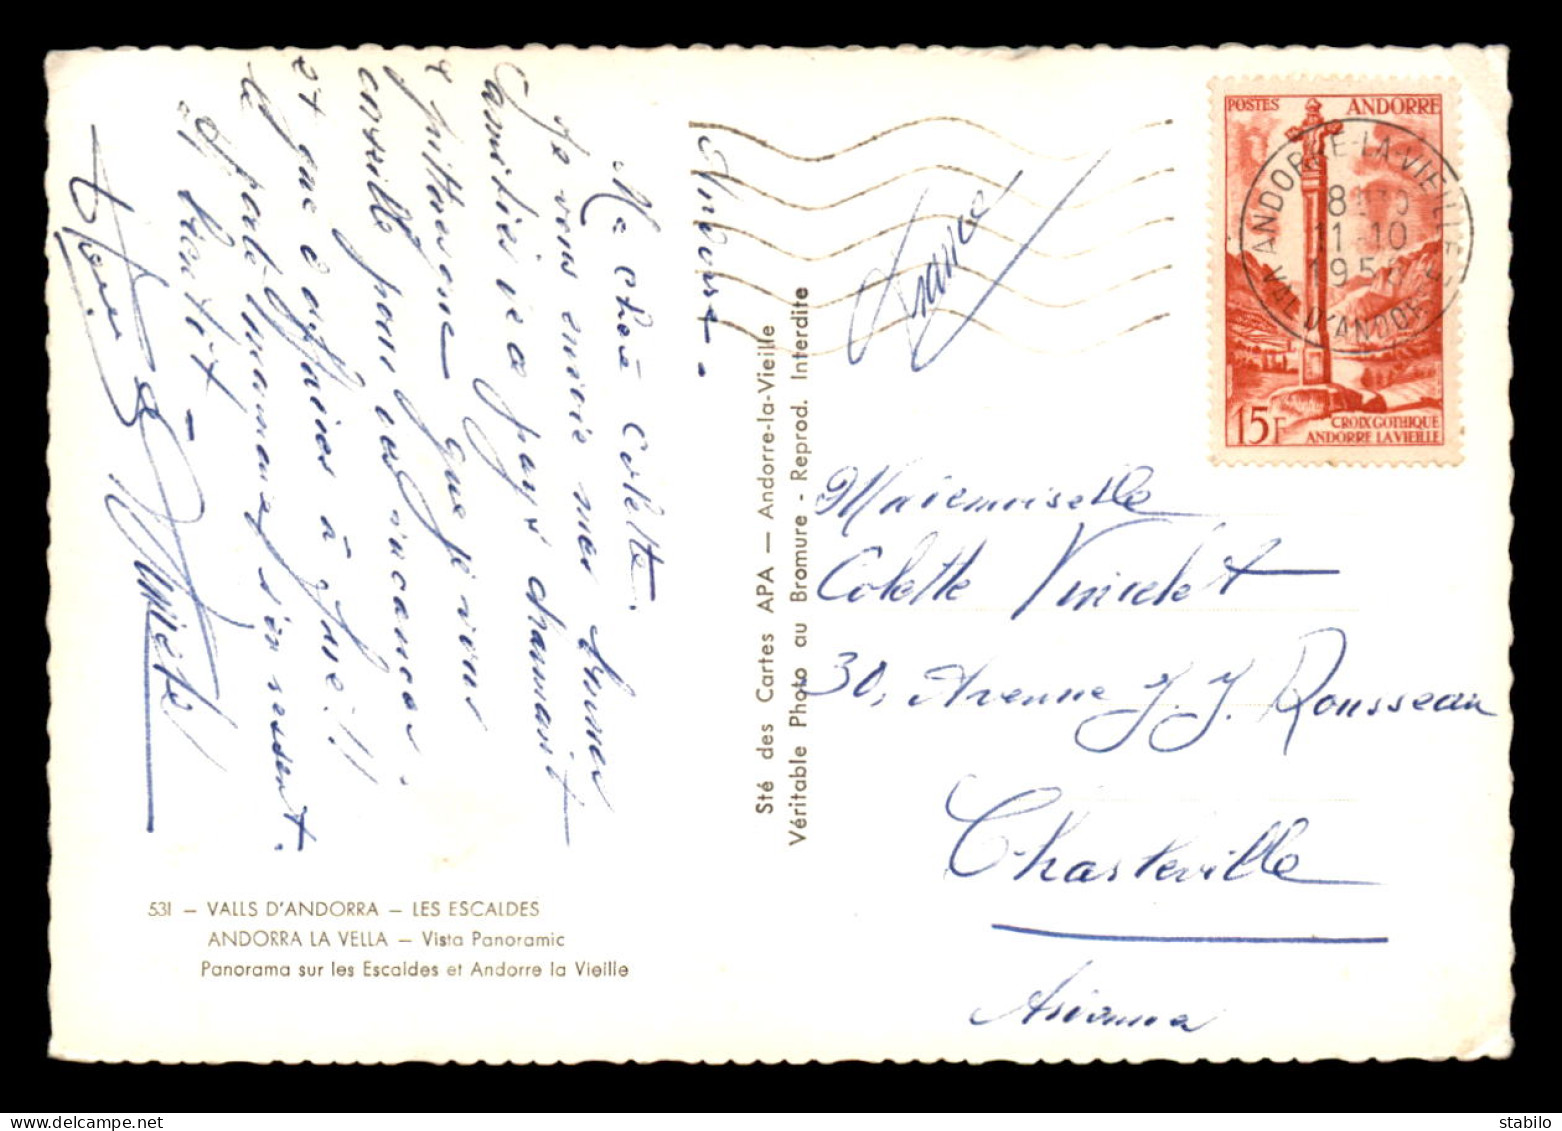 Andorre.
Ma chère Colette.
Je vous envoie mes bonnes
amitiés de ce pays charmant
& pittoresque que je vous
conseille pour vos vacances.
et que d'affaires à faire!!
le porte monnaie s'en ressent.
A bientôt
531 — VALLS D'ANDORRA — LES ESCALDES
ANDORRA LA VELLA — Vista Panoramic
Panorama sur les Escaldes et Andorre la Vieille
Sté des Cartes APA — Andorre-la-Vieille
Véritable Photo au Bromure - Reprod. Interdite
France
POSTES ANDORRE
ANDORRE-LA-VIEILLE
11-10
VAL D'ANDORRE
15F
CROIX GOTHIQUE
ANDORRE LA VIEILLE
Mademoiselle
Colette
30, Avenue J. J. Rousseau
Charleville
delcampe.net
stabilo